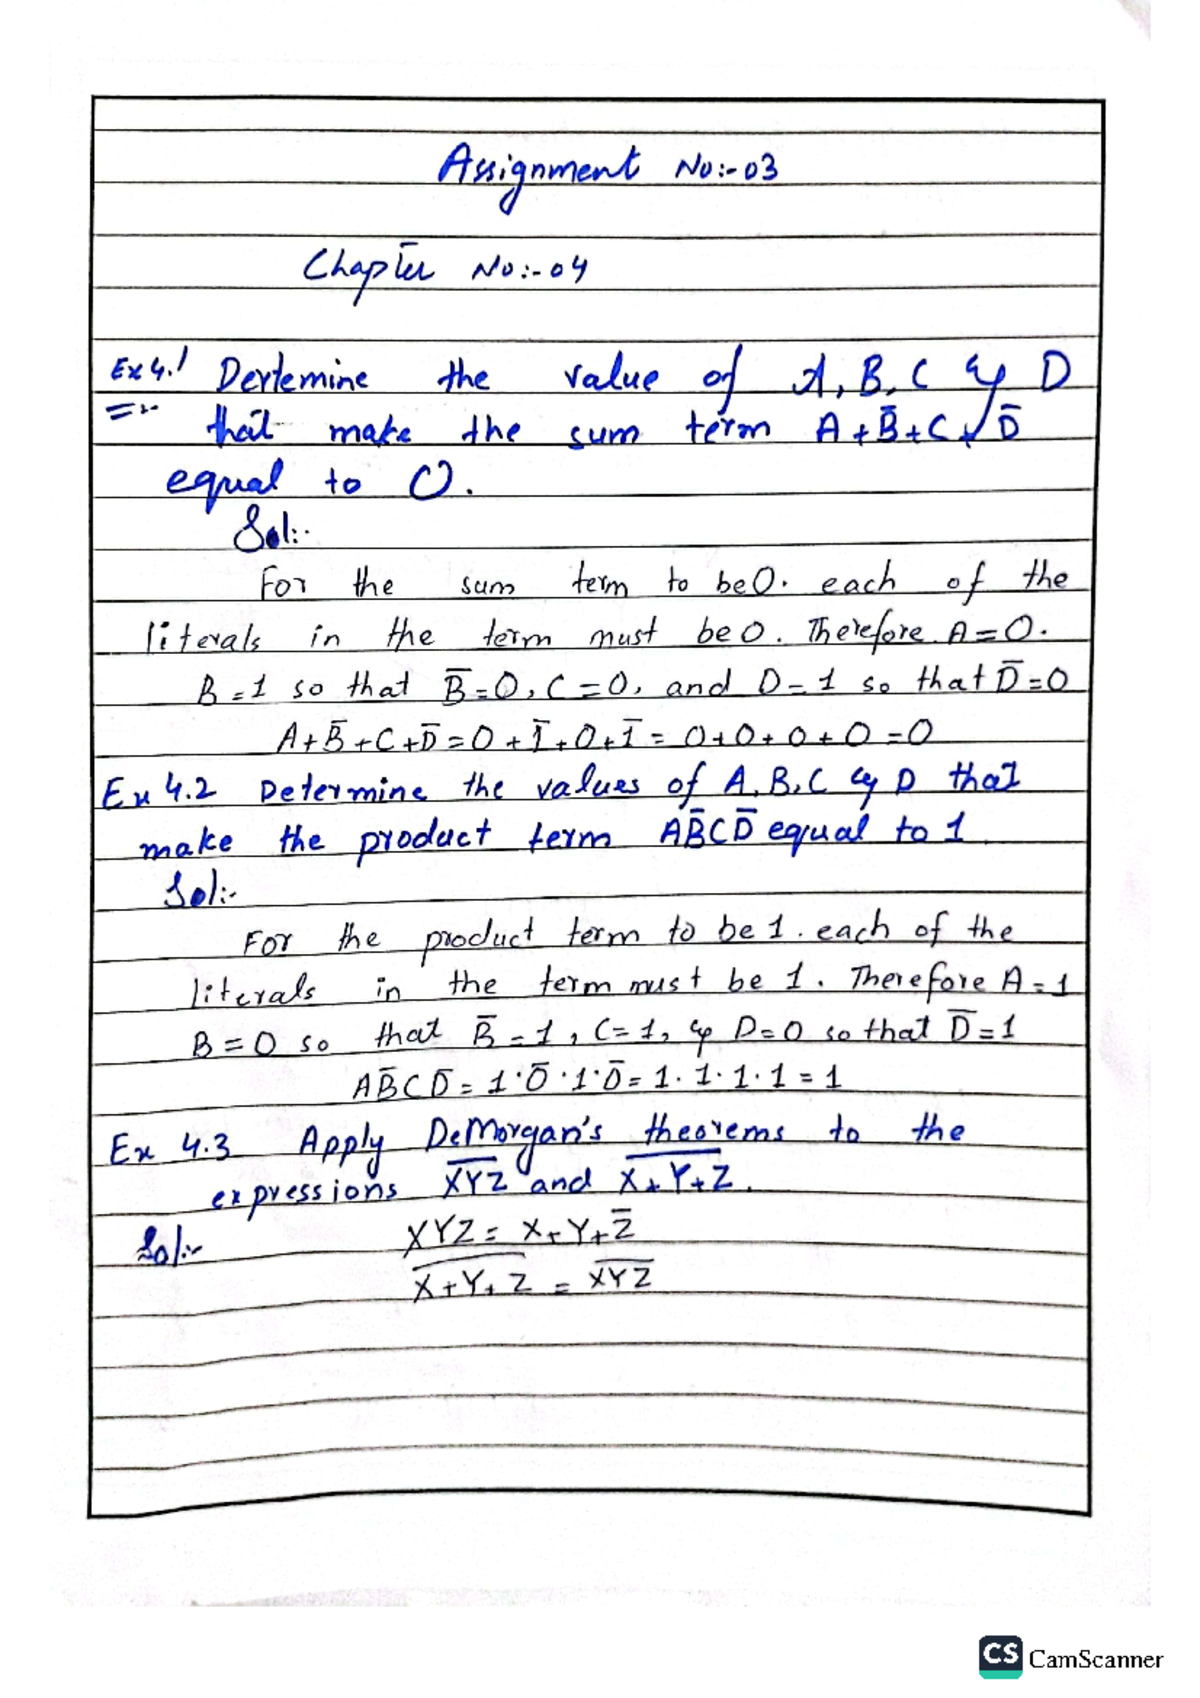 Assignment No:-03
Chapter No:-04
Ex 4.1 Dertemine the value of A, B, C & D
that make the sum term A+B̅+C+D̅
equal to 0.
Sol:-
For the sum term to be 0. each of the
literals in the term must be 0. Therefore A=0.
B=1 so that B̅=0, C=0, and D=1 so that D̅=0
A+B̅+C+D̅=0+1̅+0+1̅=0+0+0+0=0
Ex 4.2 Determine the values of A, B, C & D that
make the product term AB̅CD̅ equal to 1
Sol:-
For the product term to be 1. each of the
literals in the term must be 1. Therefore A=1
B=0 so that B̅=1, C=1, & D=0 so that D̅=1
AB̅CD̅=1·0̅·1·0̅=1·1·1·1=1
Ex 4.3 Apply DeMorgan's theorems to the
expressions X̅Y̅Z̅ and X̅+̅Y̅+̅Z̅.
Sol:- XYZ = X+Y+Z̅
X̅+̅Y̅+̅Z̅ = X̅Y̅Z̅
CS CamScanner